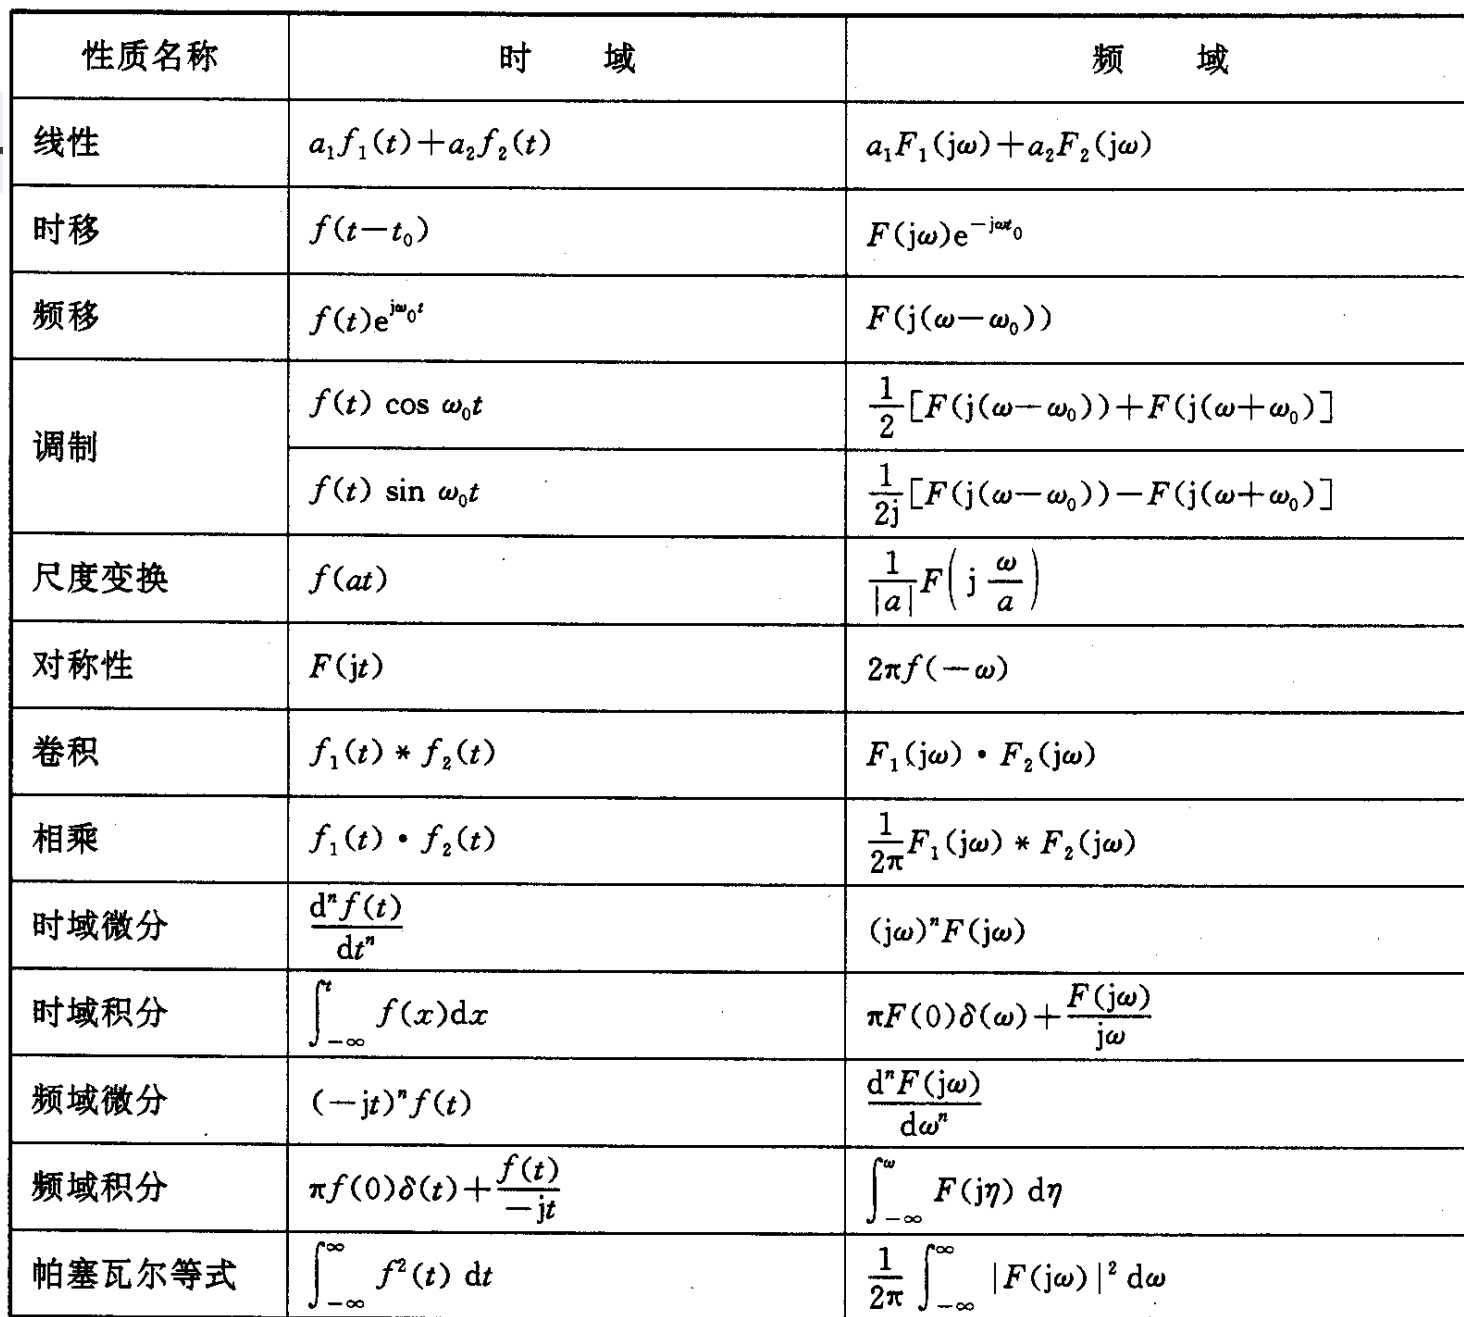 性质名称 时 域 频 域
线性 a₁f₁(t)+a₂f₂(t) a₁F₁(jω)+a₂F₂(jω)
时移 f(t−t₀) F(jω)e^{−jωt₀}
频移 f(t)e^{jω₀t} F(j(ω−ω₀))
调制 f(t) cos ω₀t \frac{1}{2}[F(j(ω−ω₀))+F(j(ω+ω₀)]
f(t) sin ω₀t \frac{1}{2j}[F(j(ω−ω₀))−F(j(ω+ω₀)]
尺度变换 f(at) \frac{1}{|a|}F(j\frac{ω}{a})
对称性 F(jt) 2πf(−ω)
卷积 f₁(t) * f₂(t) F₁(jω)・F₂(jω)
相乘 f₁(t)・f₂(t) \frac{1}{2π}F₁(jω) * F₂(jω)
时域微分 \frac{dⁿf(t)}{dtⁿ} (jω)ⁿF(jω)
时域积分 ∫_{−∞}^{t} f(x)dx πF(0)δ(ω)+\frac{F(jω)}{jω}
频域微分 (−jt)ⁿf(t) \frac{dⁿF(jω)}{dωⁿ}
频域积分 πf(0)δ(t)+\frac{f(t)}{−jt} ∫_{−∞}^{ω} F(jη) dη
帕塞瓦尔等式 ∫_{−∞}^{∞} f²(t) dt \frac{1}{2π}∫_{−∞}^{∞} |F(jω)|² dω